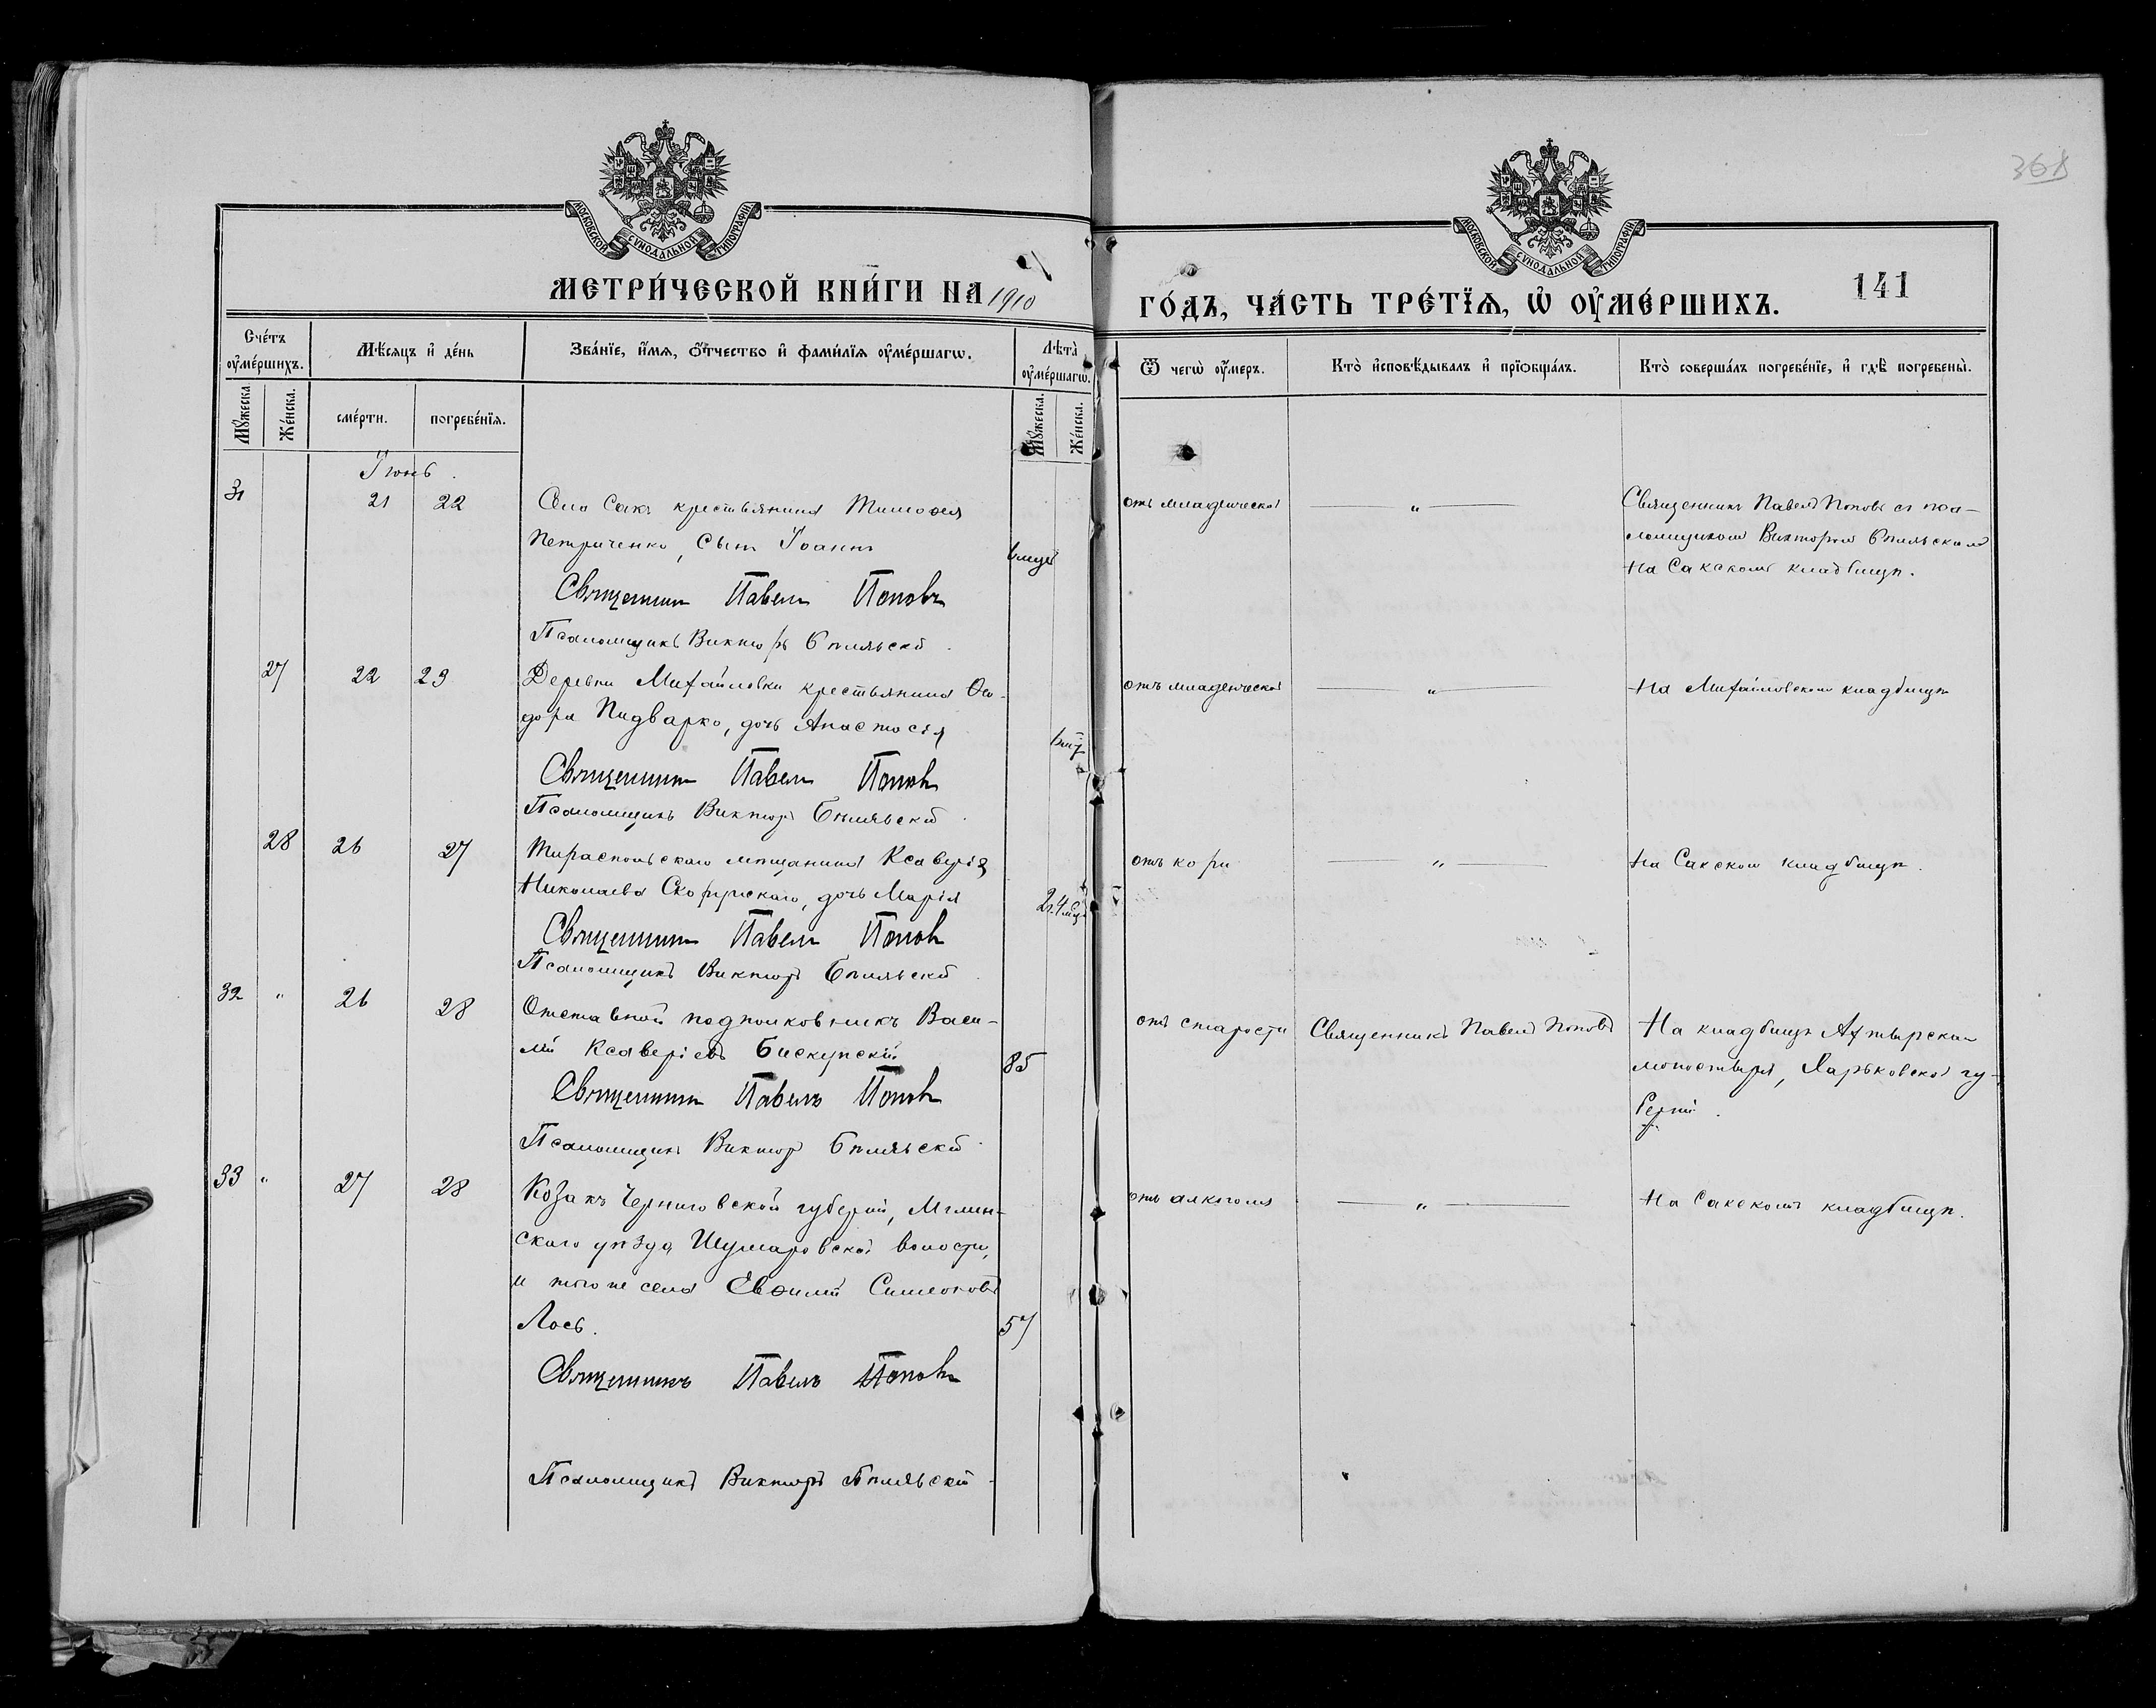 368
МОСКОВСКОЙ СУНОДАЛЬНОЙ ТИПОГРАФІИ
МОСКОВСКОЙ СУНОДАЛЬНОЙ ТИПОГРАФІИ
МЕТРИ́ЧЕСКОЙ КНИ́ГИ НА 1910
ГО́ДЪ, ЧА́СТЬ ТРЕ́ТЇѦ, Ѡ҆ ОУ҆МЕ́РШИХЪ.
141
Сче́тъ оу҆ме́ршихъ.
Мѣ́сяцъ и҆ де́нь
Зва́нїе, и҆́мѧ, ѻ҆́тчество и҆ фами́лїѧ оу҆ме́ршагѡ.
Лѣ́та̀ оу҆ме́ршагѡ.
Ѿ чегѡ̀ оу҆́меръ.
Кто̀ и҆сповѣ́дывалъ и҆ прїѡбща́лъ.
Кто̀ соверша́лъ погребе́нїе, и҆ гдѣ̀ погребены̀.
Мꙋ́жеска.
Же́нска.
сме́рти.
погребе́нїѧ.
Мꙋ́жеска.
Же́нска.
Іюнь.
31 21 22 Села Саки крестьянина Тимоѳея
Петриченко, сынъ Іоаннъ
Священникъ Павелъ Поповъ
Псаломщикъ Викторъ Бѣльскій.
отъ младенческой „
Священникъ Павелъ Поповъ съ пса-
ломщикомъ Викторомъ Бѣляьскимъ
На Сакскомъ кладбищѣ.
27 22 23 Деревни Михайловки крестьянина Ѳео-
дора Пидварко, дочь Анастасія
Священникъ Павелъ Поповъ
Псаломщикъ Викторъ Бѣляьскій
отъ младенческой „ На Михайловскомъ кладбищѣ
28 26 27 Тираспольскаго мѣщанина Ксаверія
Николаева дочь Марія 2г. 4 мѣс.
Священникъ Павелъ Поповъ
Псаломщикъ Викторъ Бѣляьскій
отъ кори „ На Сакскомъ кладбищѣ.
32 „ 26 28 Отставной подполковникъ Васи-
лій Ксаверіевъ Бискупскій 85
Священникъ Павелъ Поповъ
Псаломщикъ Викторъ Бѣляьскій
отъ старости Священникъ Павелъ Поповъ
На кладбищѣ Ахтырскаго
монастыря, Харьковской гу-
берніи.
33 „ 27 28 Козакъ Черниговской губерніи, Мглин-
скаго уѣзда Шумаровской волости,
и того же села Евѳимій Симеоновъ
Лось. 57
Священникъ Павелъ Поповъ
Псаломщикъ Викторъ Бѣляьскій
отъ алкоголя „ На Сакскомъ кладбищѣ.